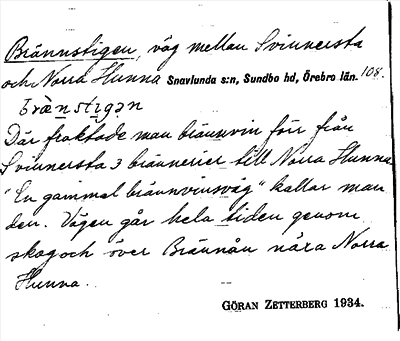 Brännstigen, väg mellan Svinnersta
och Norra Hunna Snavlunda s:n, Sundbo hd, Örebro län. 108.
bræ̀nstìgən
Där fraktade man brännvin förr från
Svinnersta 3 brännerier till Norra Hunna
"En gammal brännvinsväg" kallar man
den. Vägen går hela tiden genom
skog och över Brännån nära Norra
Hunna.
GÖRAN ZETTERBERG 1934.